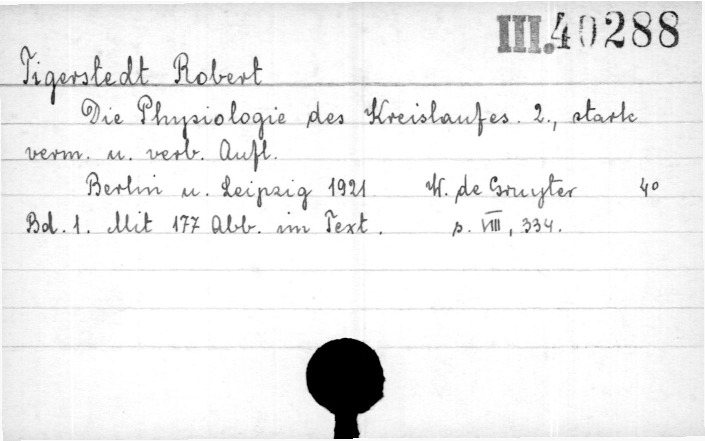 III.40288
Tigerstedt Robert
Die Physiologie des Kreislaufes. 2., stark
verm. u. verb. Aufl.
Berlin u. Leipzig 1921 W. de Gruyter 4°
Bd. 1. Mit 177 Abb. im Text. s. VIII, 334.